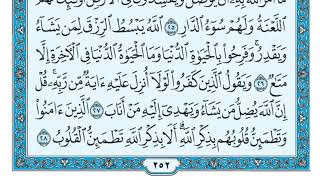 ٱللَّعْنَةُ وَلَهُمْ سُوٓءُ ٱلدَّارِ ٢٥ ٱللَّهُ يَبْسُطُ ٱلرِّزْقَ لِمَن يَشَآءُ
وَيَقْدِرُ ۚ وَفَرِحُوا۟ بِٱلْحَيَوٰةِ ٱلدُّنْيَا وَمَا ٱلْحَيَوٰةُ ٱلدُّنْيَا فِى ٱلْءَاخِرَةِ إِلَّا
مَتَٰعٌ ٢٦ وَيَقُولُ ٱلَّذِينَ كَفَرُوا۟ لَوْلَآ أُنزِلَ عَلَيْهِ ءَايَةٌ مِّن رَّبِّهِۦ ۗ قُلْ
إِنَّ ٱللَّهَ يُضِلُّ مَن يَشَآءُ وَيَهْدِىٓ إِلَيْهِ مَنْ أَنَابَ ٢٧ ٱلَّذِينَ ءَامَنُوا۟
وَتَطْمَئِنُّ قُلُوبُهُم بِذِكْرِ ٱللَّهِ ۗ أَلَا بِذِكْرِ ٱللَّهِ تَطْمَئِنُّ ٱلْقُلُوبُ ٢٨
٢٥٢